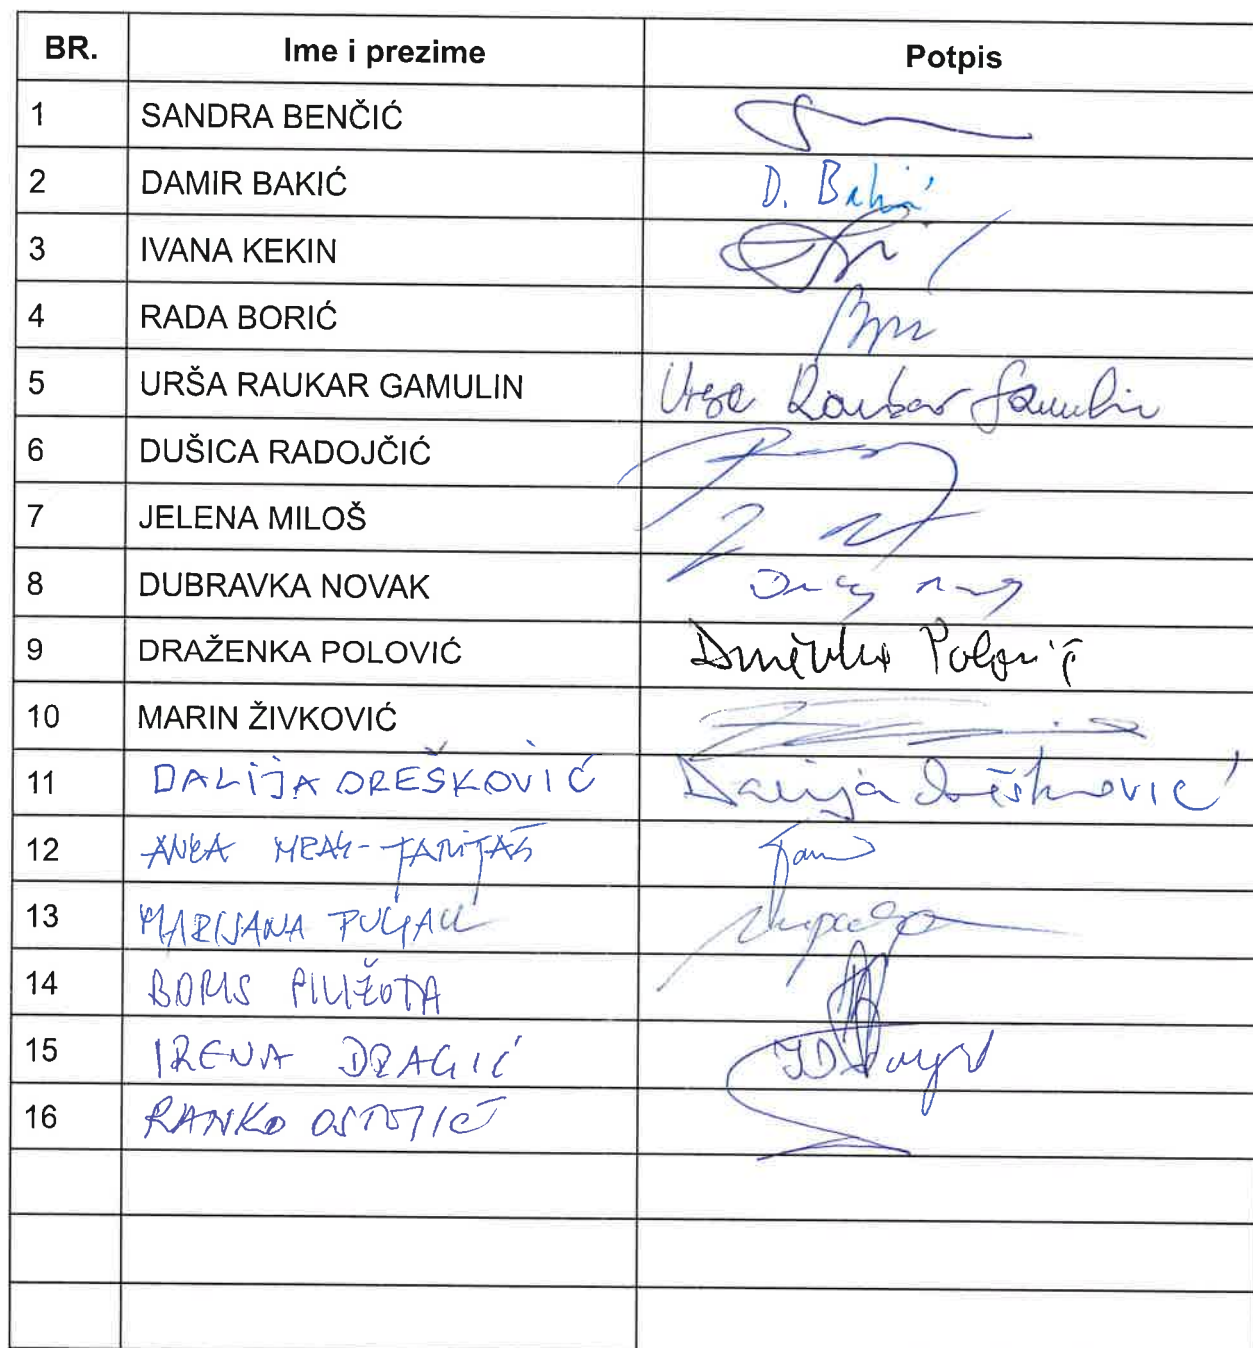 BR. Ime i prezime Potpis
1 SANDRA BENČIĆ
2 DAMIR BAKIĆ D. Bakić
3 IVANA KEKIN
4 RADA BORIĆ
5 URŠA RAUKAR GAMULIN Urša Raukar Gamulin
6 DUŠICA RADOJČIĆ
7 JELENA MILOŠ
8 DUBRAVKA NOVAK
9 DRAŽENKA POLOVIĆ Draženka Polović
10 MARIN ŽIVKOVIĆ
11 DALIJA OREŠKOVIĆ Dalija Orešković
12 ANKA MRAK-TARITAŠ
13 MARIJANA PULJAK
14 BORIS PILIŽOTA
15 IRENA DRAGIĆ
16 RANKO OSTOJIĆ